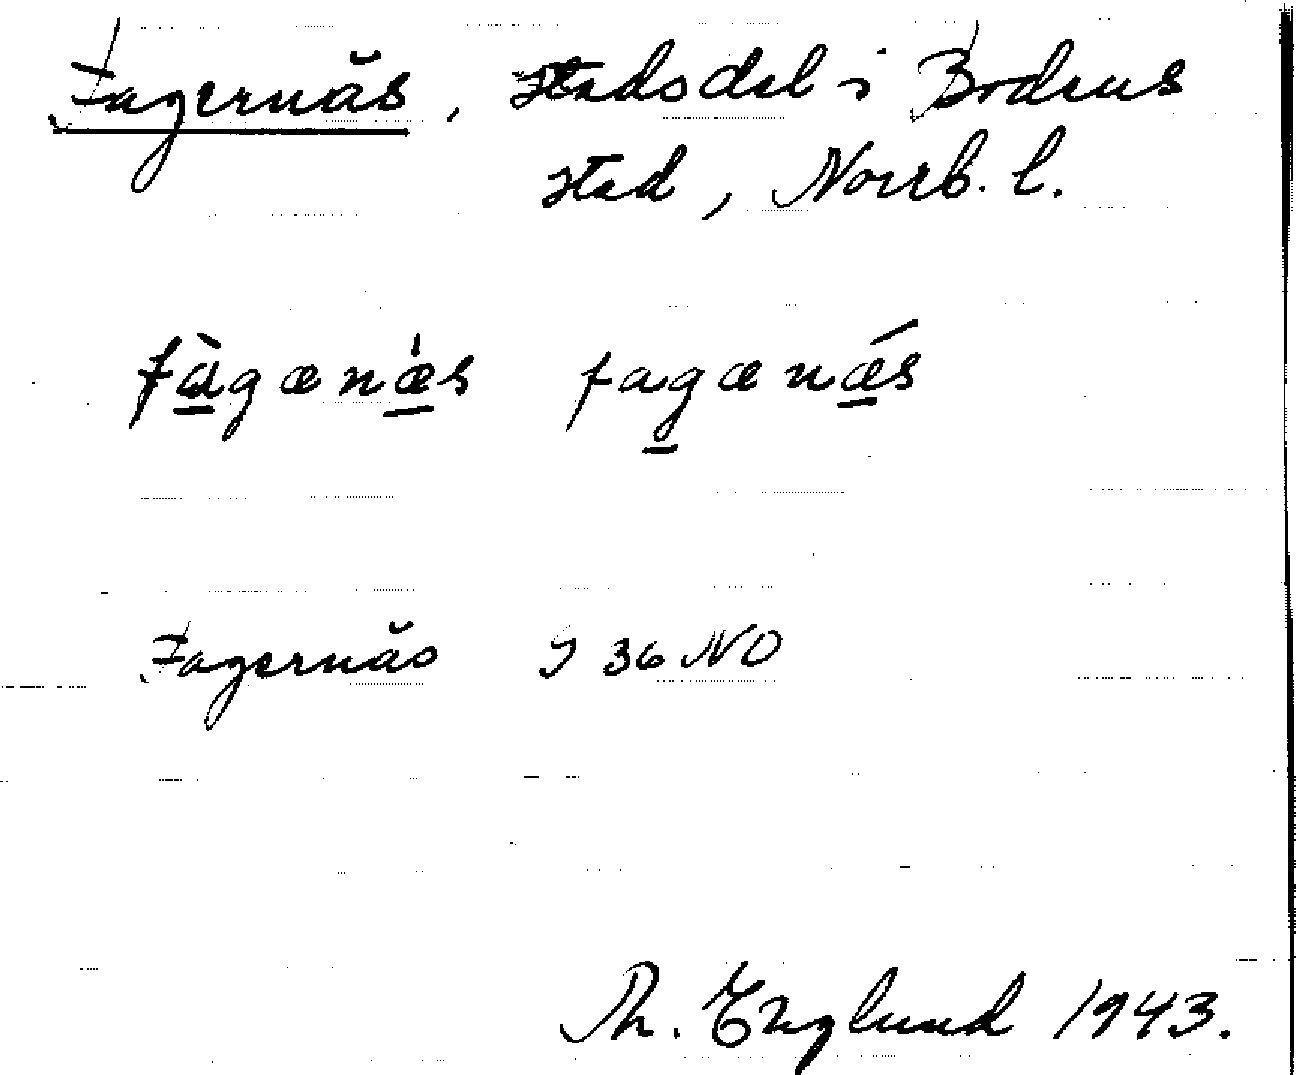 Fagernäs, stadsdel i Bodens
stad, Norrb. l.
fàgænǽs fagænǽs
Fagernäs J 36 NO
Th. Englund 1943.